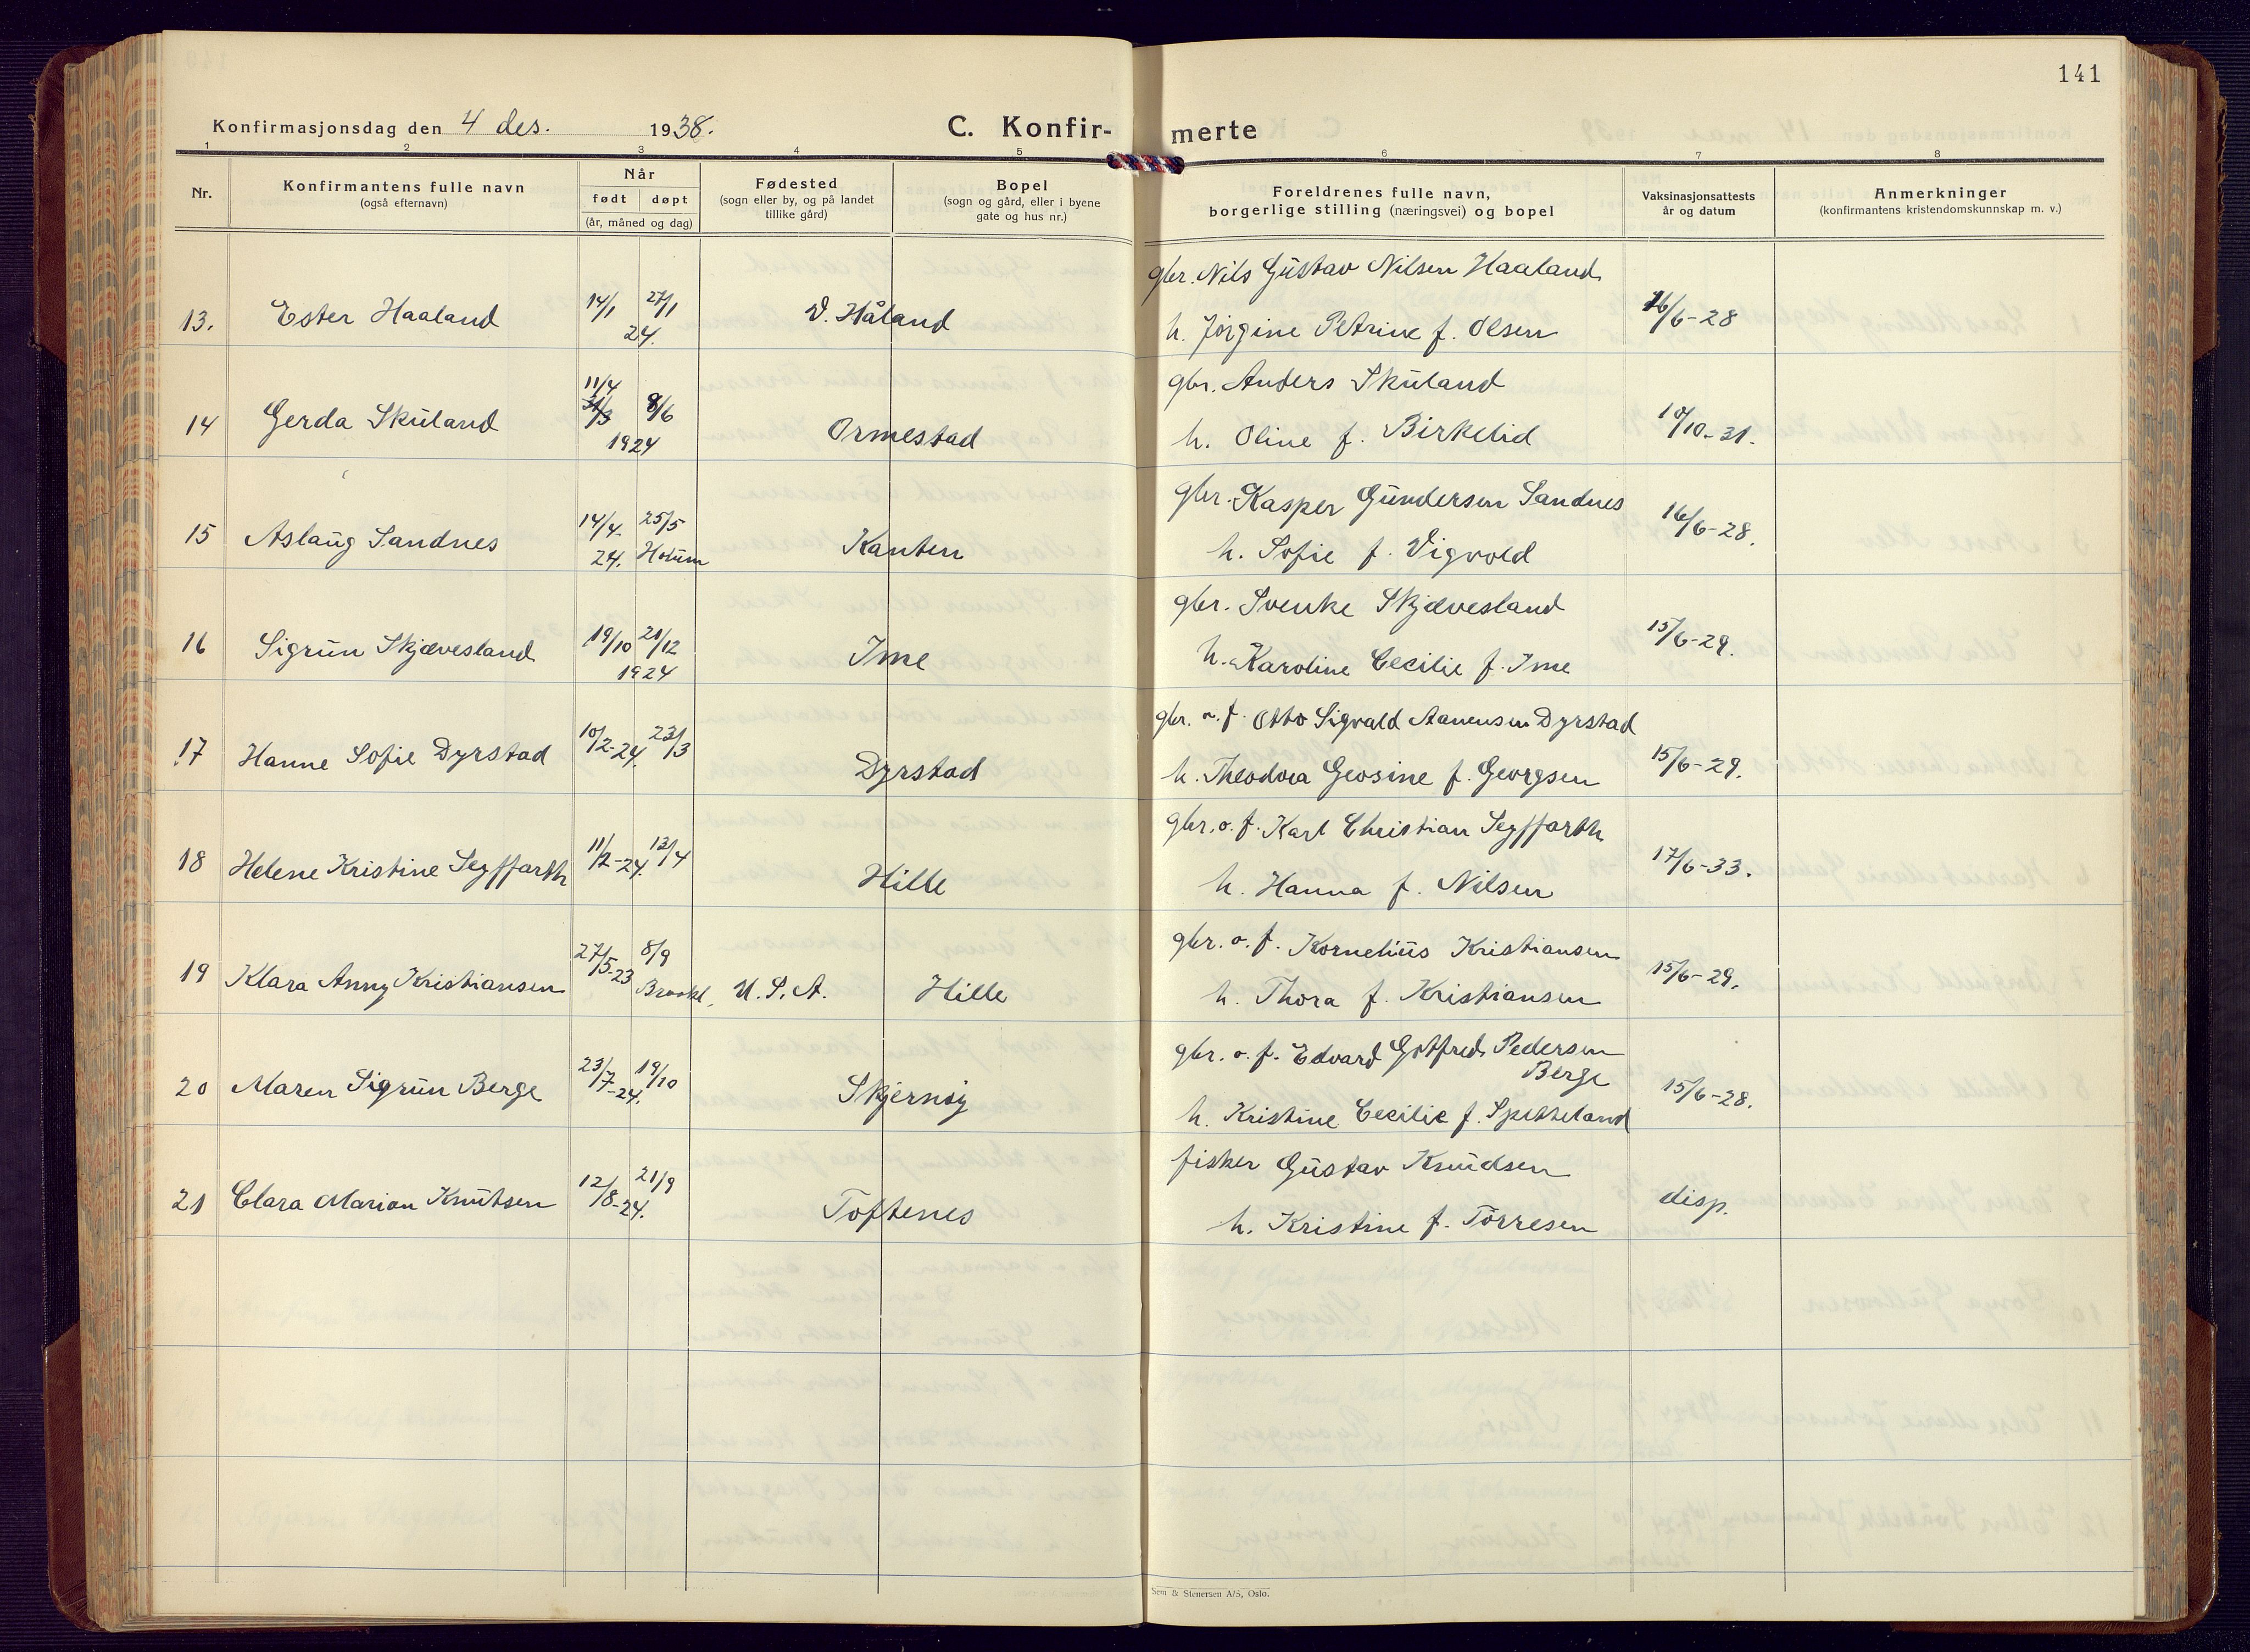 141
Konfirmasjonsdag den 4 des. 1938.
C. Konfir-
merte
1 2 3 4 5 6 7 8
Nr.
Konfirmantens fulle navn
(også efternavn)
Når
født døpt
(år, måned og dag)
Fødested
(sogn eller by, og på landet
tillike gård)
Bopel
(sogn og gård, eller i byene
gate og hus nr.)
Foreldrenes fulle navn,
borgerlige stilling (næringsvei) og bopel
Vaksinasjonsattests
år og datum
Anmerkninger
(konfirmantens kristendomskunnskap m. v.)
gbr. Nils Gustav Nilsen Haaland
13. Ester Haaland 14/1 27/1 V. Håland 16/6-28
24. h. Jörgine Petrine f. Olsen
11/4 gbr. Anders Skuland
14 Gerda Skuland 31/3 8/6 Ormestad 10/10-31.
1924 h. Oline f. Birkelid
gbr. Kasper Gundersen Sandnes
15 Aslaug Sandnes 14/4 25/5 Kanten 16/6-28.
24. Holum h. Sofie f. Vigvold
gbr. Svenke Skjævesland
16 Sigrun Skjævesland 19/10 21/12 Ime 15/6-29.
1924 h. Karoline Cecilie f. Ime
gbr. o. f. Otto Sigvald Aanensen Dyrstad
17 Hanne Sofie Dyrstad 10/2-24. 23/3 Dyrstad 15/6-29.
h. Theodora Geosine f. Georgsen
gbr. o. f. Karl Christian Seyffarth
18 Helene Kristine Seyffarth 11/2-24. 13/4 Hille 17/6-33.
h. Hanna f. Nilsen
gbr. o. f. Kornelius Kristiansen
19 Klara Anny Kristiansen 27/5-23 8/9 Brookl. U.S.A. Hille 15/6-29.
h. Thora f. Kristiansen
gbr. o. f. Edvard Gotfred Pedersen
Berge
20 Maren Sigrun Berge 23/7-24. 19/10 Skjernöy 15/6-28.
h. Kristine Cecilie f. Spetteland
fisker Gustav Knudsen
21 Clara Marion Knutsen 12/8-24. 21/9 Toftenes disp.
h. Kristine f. Törresen
Sem & Stenersen A/S, Oslo.